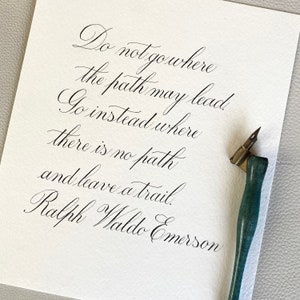 Do not go where
the path may lead
Go instead where
there is no path
and leave a trail.
Ralph Waldo Emerson